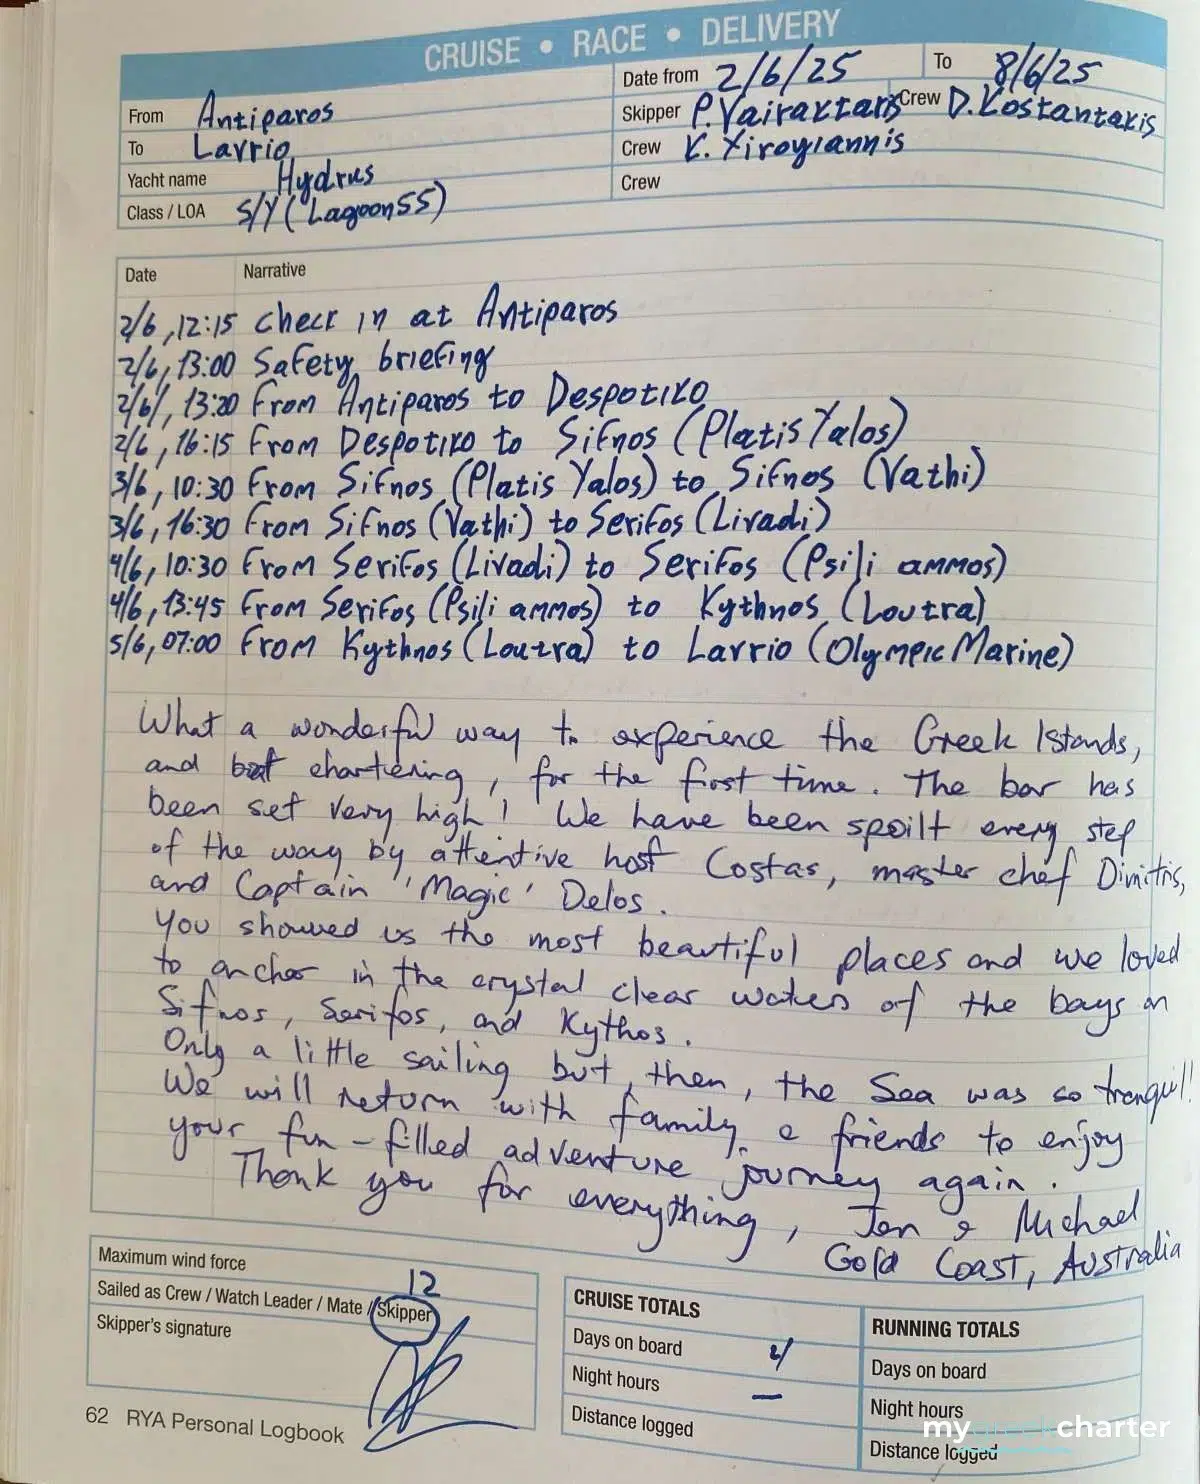 CRUISE • RACE • DELIVERY
From Antiparos
To Lavrio
Yacht name Hydrus
Class / LOA S/Y (Lagoon 55)
Date from 2/6/25 To 8/6/25
Skipper P. Vairaktaris Crew D. Kostantakis
Crew K. Xirogiannis
Crew
Date Narrative
2/6, 12:15 check in at Antiparos
2/6, 13:00 Safety briefing
2/6, 13:20 From Antiparos to Despotiko
2/6, 16:15 From Despotiko to Sifnos (Platis Yalos)
3/6, 10:30 From Sifnos (Platis Yalos) to Sifnos (Vathi)
3/6, 16:30 From Sifnos (Vathi) to Serifos (Livadi)
4/6, 10:30 From Serifos (Livadi) to Serifos (Psili ammos)
4/6, 13:45 From Serifos (Psili ammos) to Kythnos (Loutra)
5/6, 07:00 From Kythnos (Loutra) to Lavrio (Olympic Marine)
What a wonderful way to experience the Greek Islands,
and boat chartering, for the first time. The bar has
been set very high! We have been spoilt every step
of the way by attentive host Costas, master chef Dimitris,
and Captain 'Magic' Delos.
You showed us the most beautiful places and we loved
to anchor in the crystal clear waters of the bays on
Sifnos, Serifos, and Kythos.
Only a little sailing but, then, the Sea was so tranquil!
We will return with family & friends to enjoy
your fun-filled adventure journey again.
Thank you for everything, Jen & Michael
Gold Coast, Australia
Maximum wind force 12
Sailed as Crew / Watch Leader / Mate / Skipper
Skipper's signature
CRUISE TOTALS
Days on board
Night hours –
Distance logged
RUNNING TOTALS
Days on board
Night hours
Distance logged
62 RYA Personal Logbook
mygreekcharter